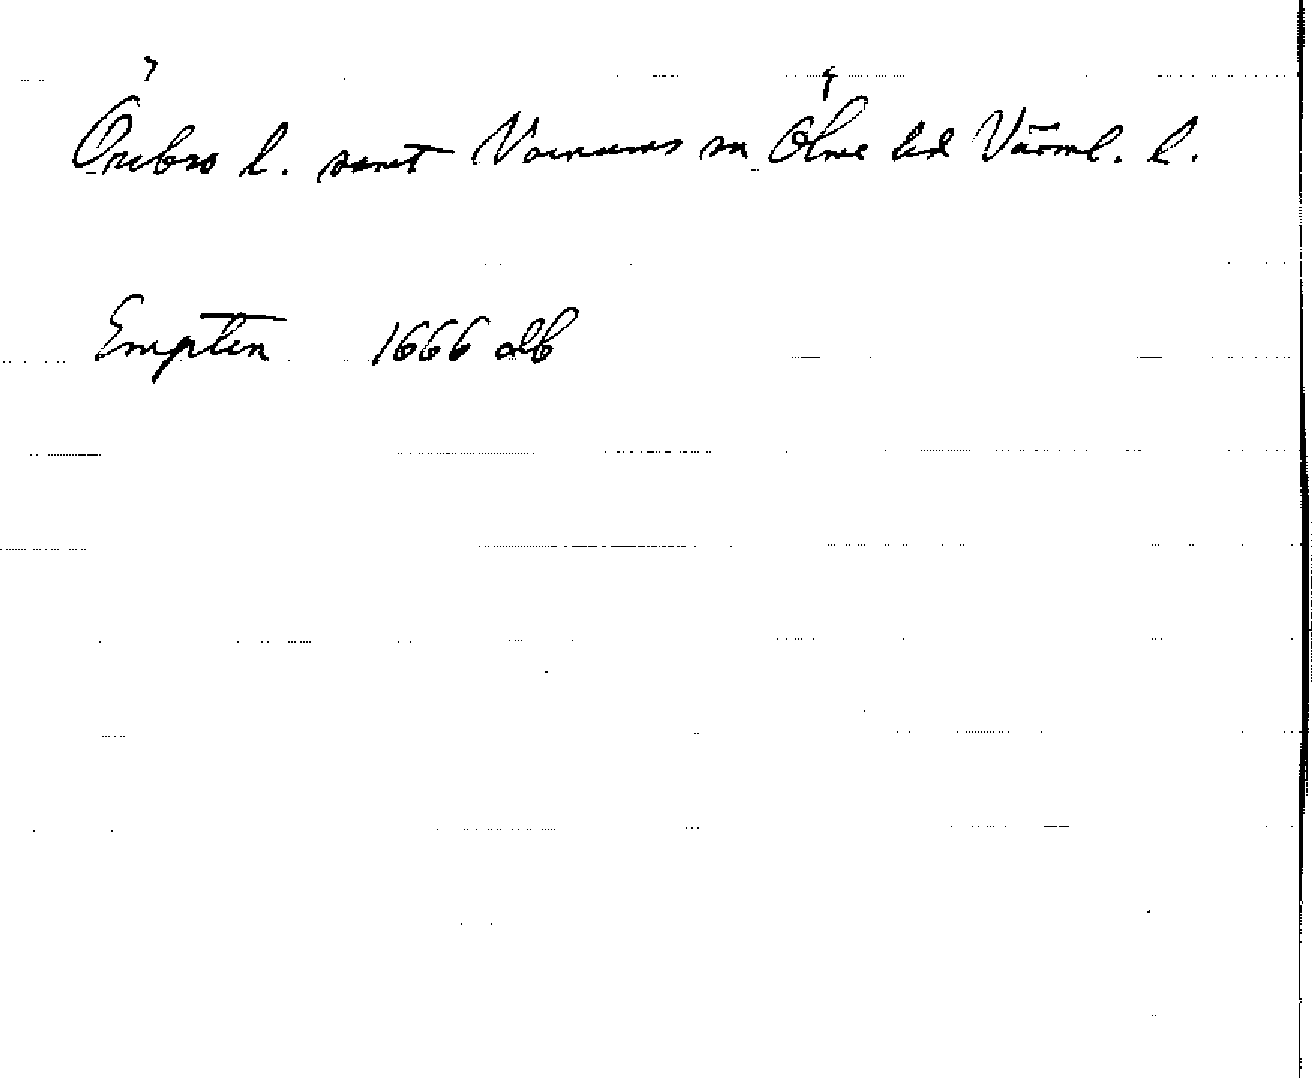 Örebro l. samt Varnums sn Ölme hd Värml. l.
Empten 1666 db